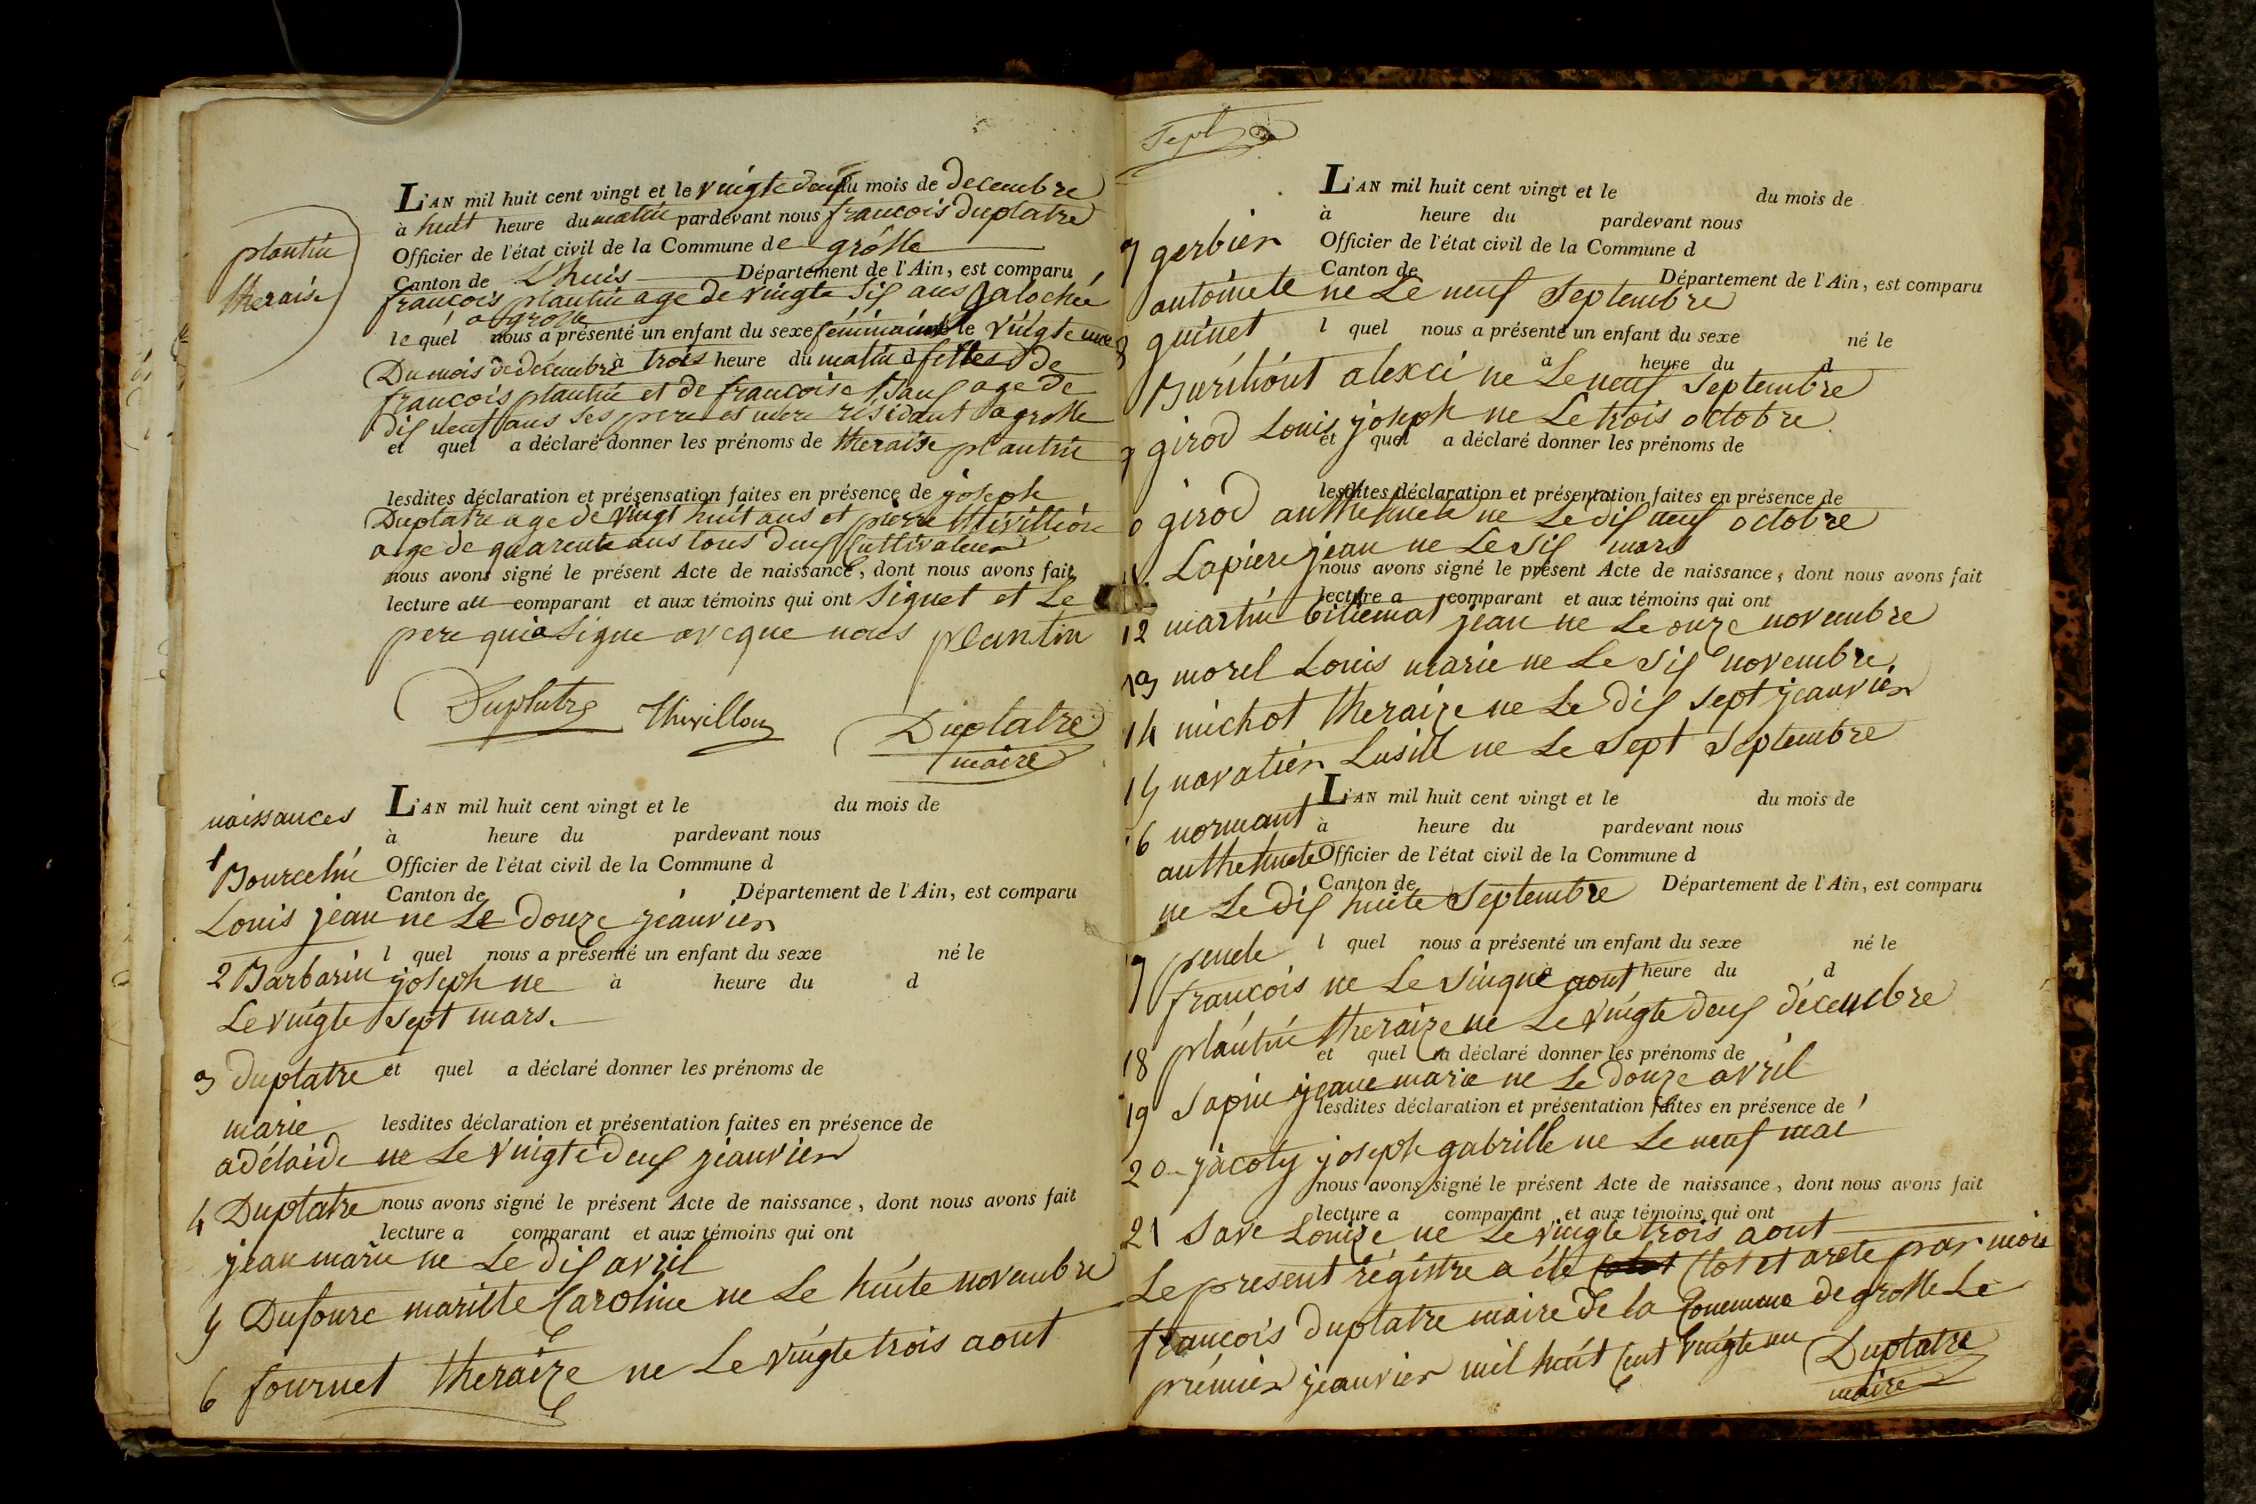 plantin
theraise
L'AN mil huit cent vingt et le vingte deuf du mois de decembre
à huit heure du matin pardevant nous francois duplatre
Officier de l'état civil de la Commune de grôlle
Canton de L'huis Département de l'Ain, est comparu
francois plantin age de vingte sif ans
a grolle
le quel nous a présenté un enfant du sexe le vingte une
Du mois de décembre à trois heure du matin d filles de
francois plantin et de francoise age de
dif neuf ans ses pere et mere résidant a grolle
et quel a déclaré donner les prénoms de theraise plantin
lesdites déclaration et présensation faites en présence de joseph
Duplatre age de vingt huit ans et pierre thivillion
age de quarente ans tous deuf Cultivateur
nous avons signé le présent Acte de naissance, dont nous avons fait
lecture au comparant et aux témoins qui ont signet et Le
pere qui a signe avecque nous plantin
Duplatre thivillon Duplatre
maire
naissances
L'AN mil huit cent vingt et le du mois de
à heure du pardevant nous
1 Bourcelin Officier de l'état civil de la Commune d
Canton de Département de l'Ain, est comparu
Louis jean ne Le douze jeanvier
l quel nous a présenté un enfant du sexe né le
2 Barbarin joseph ne à heure du d
Le vingte sept mars.
3 duplatre et quel a déclaré donner les prénoms de
marie lesdites déclaration et présentation faites en présence de
adélaide ne Le vingte deuf jeanvier
4 Duplatre nous avons signé le présent Acte de naissance, dont nous avons fait
lecture a comparant et aux témoins qui ont
jean marie ne Le dif avril
5 Dufoure mariette Caroline ne Le huite novembre
6 fournet theraize ne Le vingte trois aout
Sept
L'AN mil huit cent vingt et le du mois de
à heure du pardevant nous
7 gerbier Officier de l'état civil de la Commune d
Canton de Département de l'Ain, est comparu
antoinete ne Le neuf Septembre
8 guinet l quel nous a présenté un enfant du sexe né le
à heure du d
alexci ne Le neuf septembre
9 girod Louis joseph ne Le trois octobre
et quel a déclaré donner les prénoms de
lesdites déclaration et présentation faites en présence de
0 girod anthelmete ne Le dif neuf octobre
11 Lapiere jean ne Le sif mars
nous avons signé le présent Acte de naissance, dont nous avons fait
lecture a comparant et aux témoins qui ont
12 martin jean ne Le onze novembre
13 morel Louis marie ne Le sif novembre
14 michot theraize ne Le dif sept jeanvier
15 navatier Lusill ne Le sept septembre
L'AN mil huit cent vingt et le du mois de
16 normant à heure du pardevant nous
anthelmete Officier de l'état civil de la Commune d
Canton de Département de l'Ain, est comparu
ne Le dif huite septembre
7 penele l quel nous a présenté un enfant du sexe né le
francois ne Le sinque aout heure du d
18 plantin theraize ne Le vingte deuf décembre
et quel a déclaré donner les prénoms de
19 Sapin jeane marie ne Le douze avril
lesdites déclaration et présentation faites en présence de
20 jacoty joseph gabrille ne Le neuf mai
nous avons signé le présent Acte de naissance, dont nous avons fait
lecture a comparant et aux témoins qui ont
21 Save Louize ne Le vingte trois aout
Le present régistre a éte Clot et arete par moi
francois duplatre maire de la Comemune de grolle Le
prémier jeanvier mil huit Cent vingte un Duplatre
maire